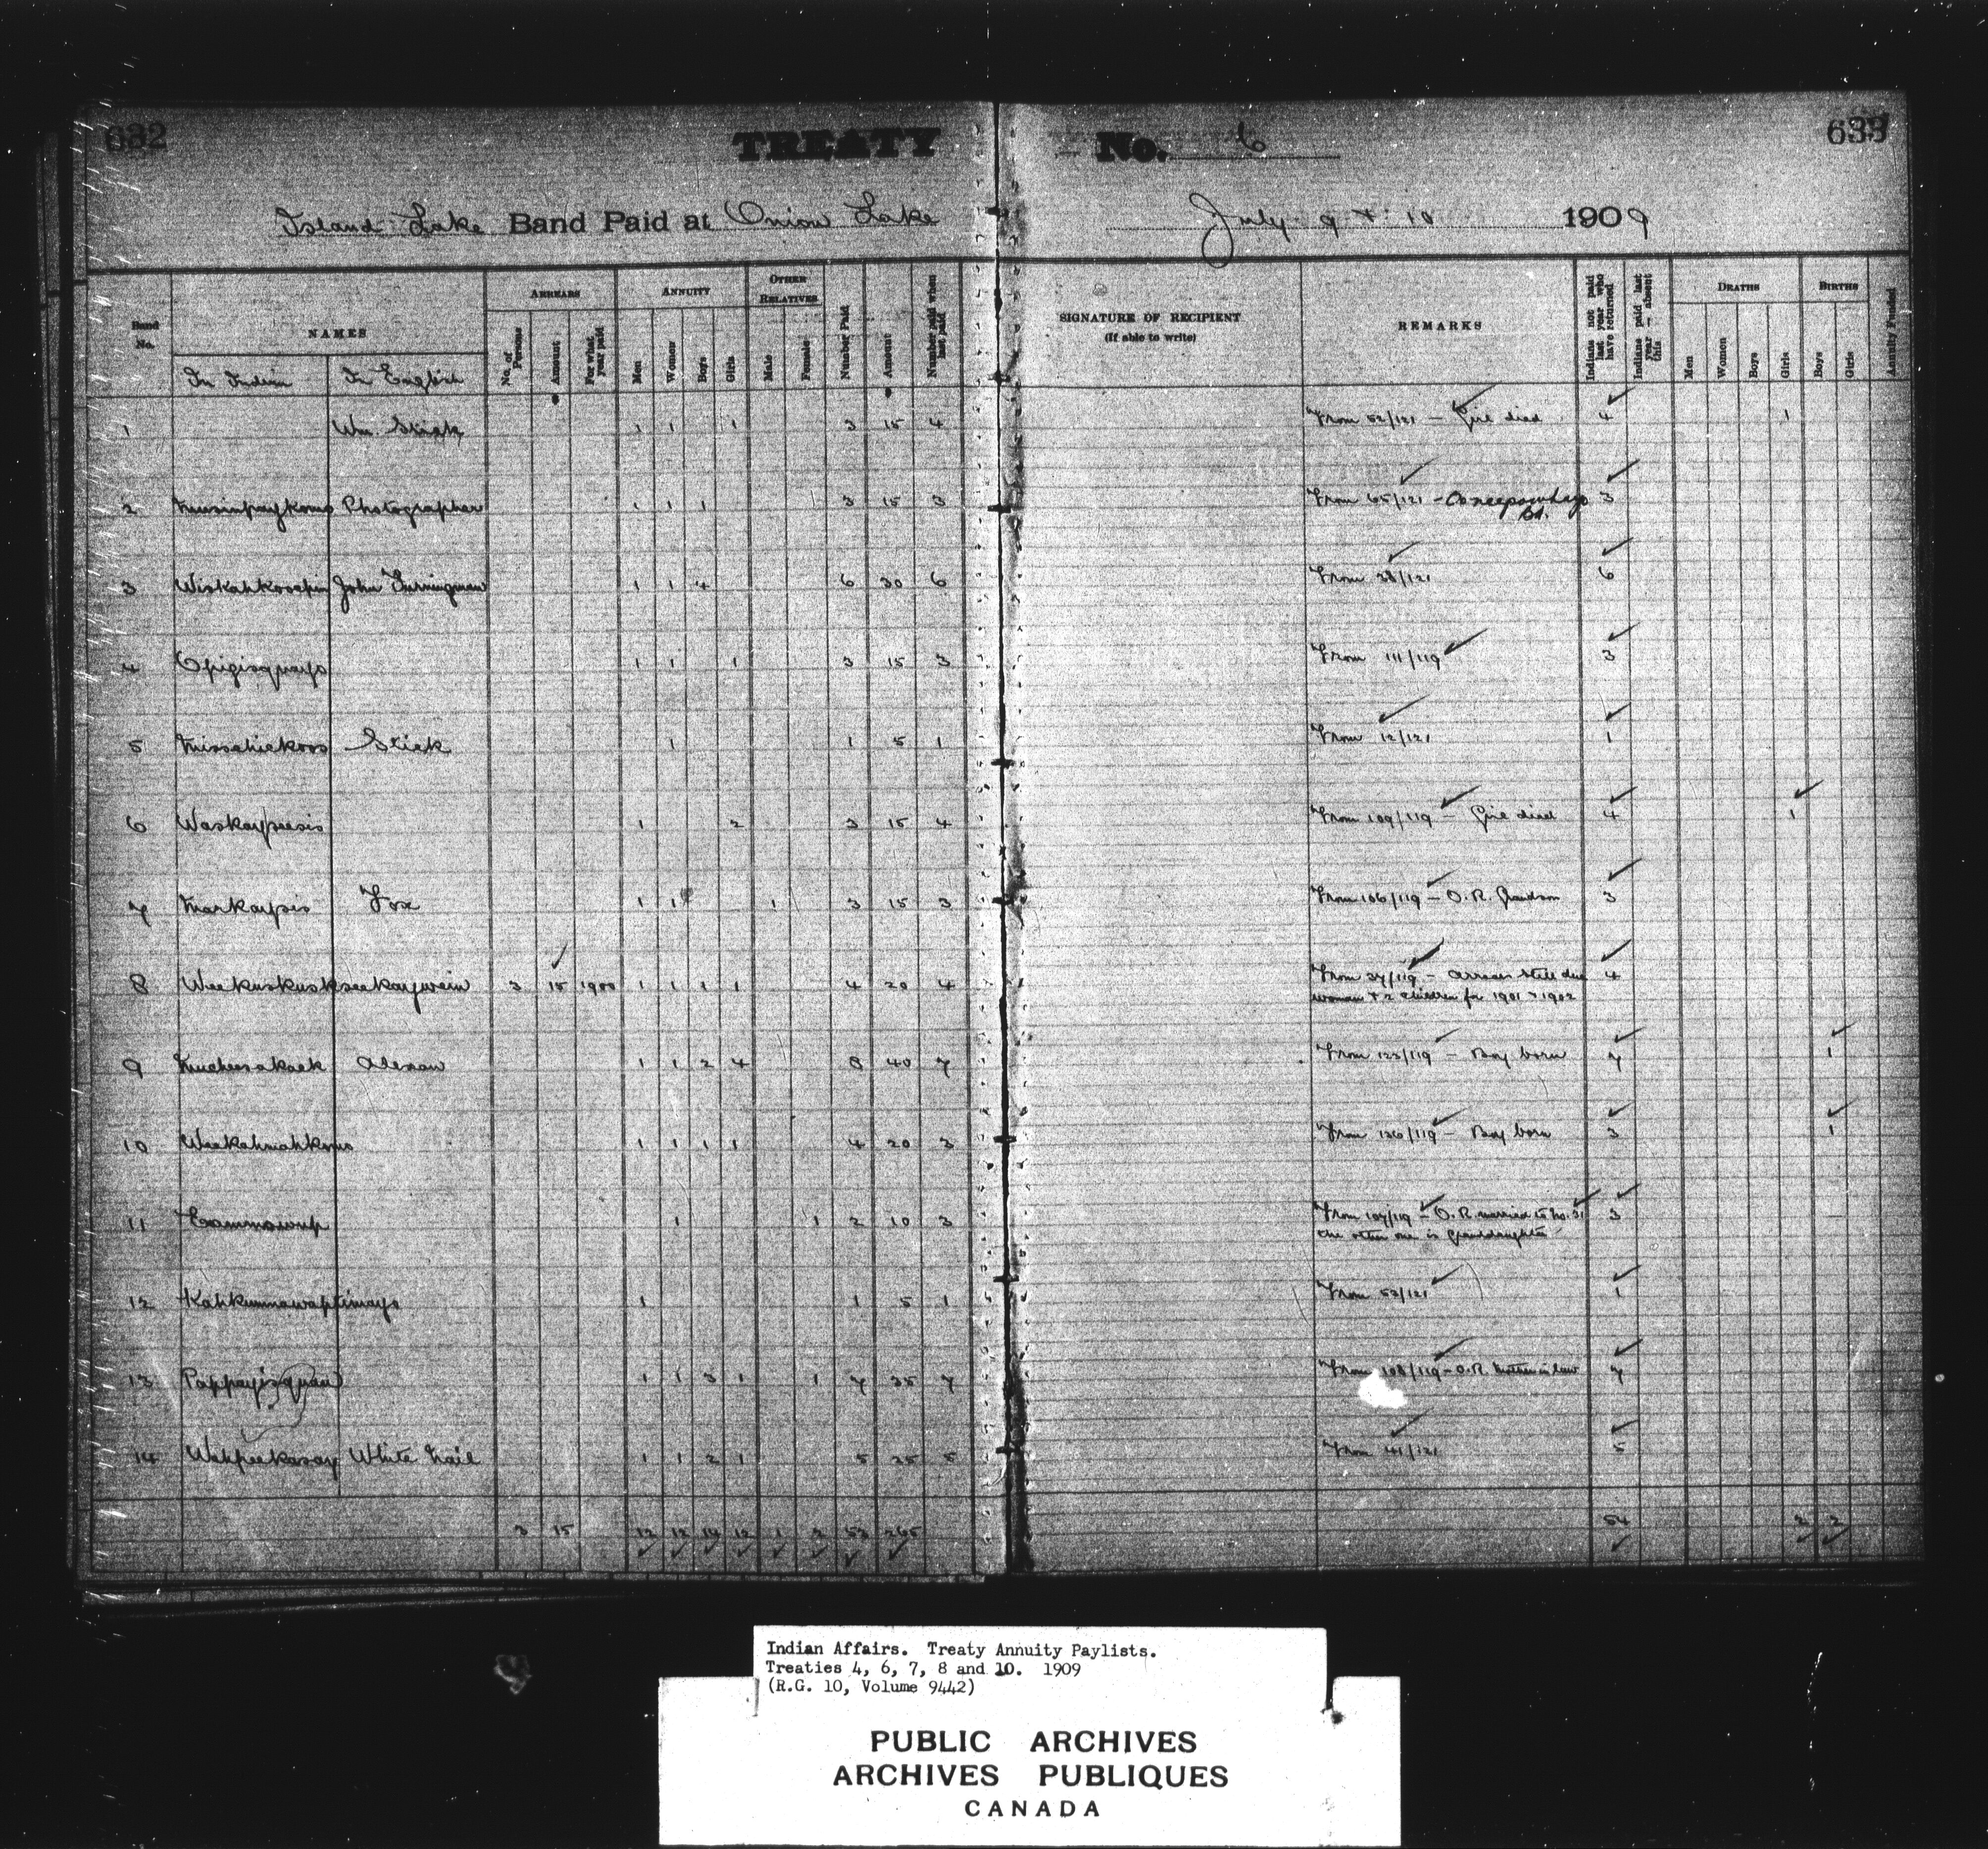 632
TREATY No. 6
633
Island Lake Band Paid at Onion Lake July 9 & 10 1909
Band No. NAMES ARREARS ANNUITY OTHER RELATIVES Number Paid Amount Number paid when last paid SIGNATURE OF RECIPIENT (If able to write) REMARKS Indians not paid last year who have returned Indians paid last year - absent this DEATHS BIRTHS Annuity Funded
In Indian In English No. of Persons Amount For what year paid Men Women Boys Girls Male Female Men Women Boys Girls Boys Girls
1 Wm. Stick 1 1 1 3 15 4 From 52/121 — Girl died 4 1
2 Photographer 1 1 1 3 15 3 From 65/121 - 3
Bd.
3 John 1 1 4 6 30 6 From 28/121 6
4 1 1 1 3 15 3 From 111/119 3
5 Stick 1 1 5 1 From 12/121 1
6 Waskaypeesis 1 2 3 15 4 From 109/119 — Girl died 4 1
7 Fox 1 1 1 3 15 3 From 106/119 — O.R. Grandson 3
8 3 15 1900 1 1 1 1 4 20 4 From 37/119 - arrears still due 4
woman & 2 children for 1901 & 1902
9 1 1 2 4 8 40 7 From 123/119 — Boy born 7 1
10 1 1 1 1 4 20 3 From 126/119 — Boy born 3 1
11 1 1 2 10 3 From 107/119 — O.R. married to No. 31 3
the other one is Granddaughter
12 1 1 5 1 From 53/121 1
13 1 1 3 1 1 7 35 7 From 108/119 - O.R. Mother in law 7
14 White Nail 1 1 2 1 5 25 5 From 41/121 5
3 15 12 12 14 12 1 2 53 265 54 2 2
Indian Affairs. Treaty Annuity Paylists.
Treaties 4, 6, 7, 8 and 10. 1909
(R.G. 10, Volume 9442)
PUBLIC ARCHIVES
ARCHIVES PUBLIQUES
CANADA